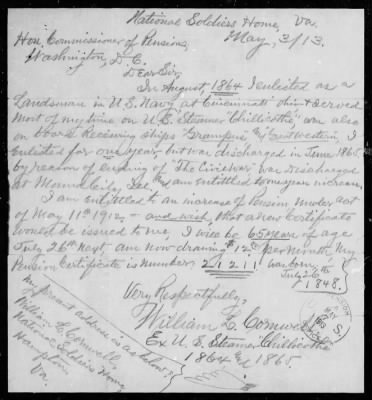 National Soldiers Home, Va.
May, 3/13.
Hon. Commissioner of Pensions,
Washington, D. C.
Dear Sir,
In August, 1864 I enlisted as a
Landsman in U.S. Navy, at Cincinnati Ohio & served
most of my time on U.S. Steamer "Chillicothe" am also
on board Receiving ships "Grampus" & "Great Western" I
enlisted for one year but was discharged in June 1865
by reason of ending of "The Civil War" was discharged
at Mound City, Ill, and am entitled to one year increase,
I am entitled to an increase of Pension under act
of May 11th 1912, - and wish, that a new Certificate
would be issued to me, I will be 65 years of age
July 26th next am now drawing $12.00 per month, My
Pension Certificate is number 21211 was born
July 26th
1848.
Very Respectfully,
William L. Cornwell
Ex U.S. Steamer Chillicothe
1864 and 1865.
My present address is as below
William L. Cornwell,
National Soldiers Home
Hampton,
Va.